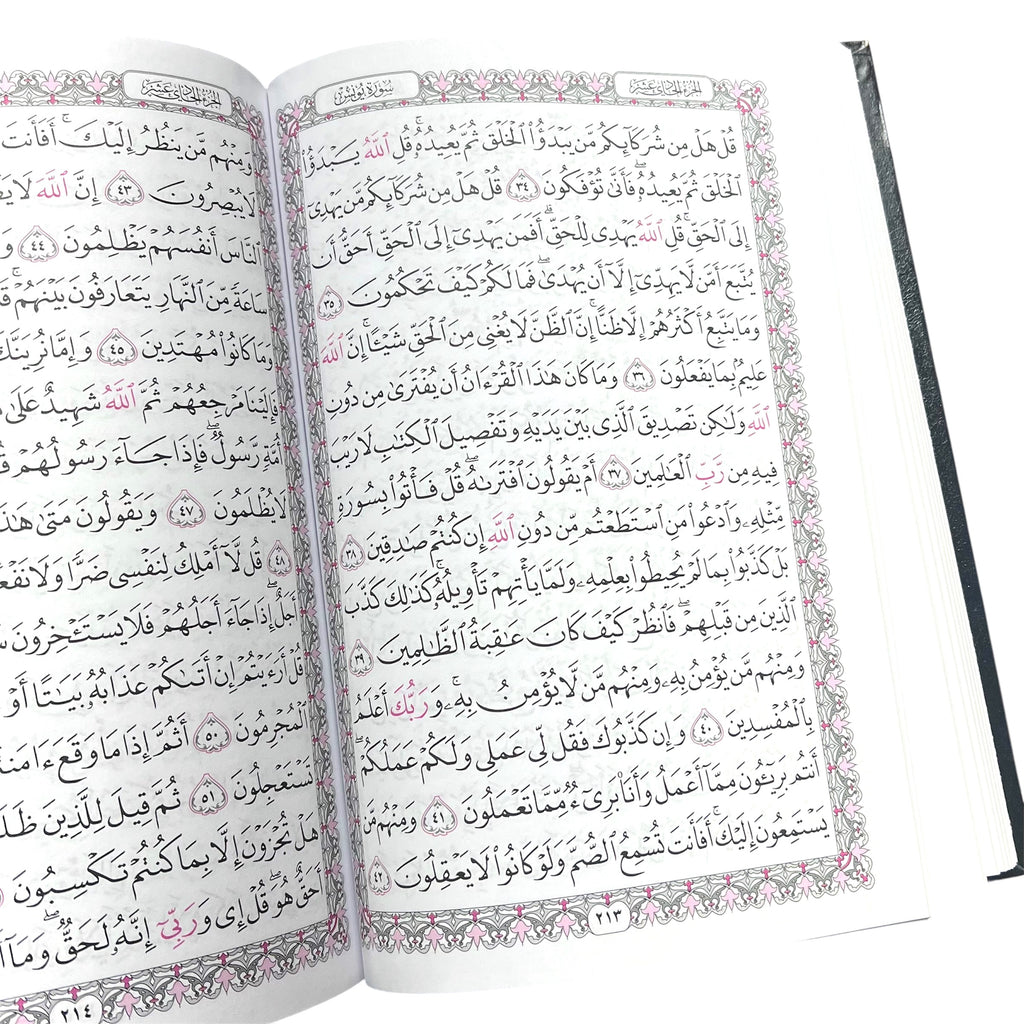 الجزء الحادي عشر
سورة يونس
قُلْ هَلْ مِن شُرَكَآئِكُم مَّن يَبْدَؤُا۟ ٱلْخَلْقَ ثُمَّ يُعِيدُهُۥ ۚ قُلِ ٱللَّهُ يَبْدَؤُا۟
ٱلْخَلْقَ ثُمَّ يُعِيدُهُۥ ۖ فَأَنَّىٰ تُؤْفَكُونَ ٣٤ قُلْ هَلْ مِن شُرَكَآئِكُم مَّن يَهْدِىٓ
إِلَى ٱلْحَقِّ ۚ قُلِ ٱللَّهُ يَهْدِى لِلْحَقِّ ۗ أَفَمَن يَهْدِىٓ إِلَى ٱلْحَقِّ أَحَقُّ أَن
يُتَّبَعَ أَمَّن لَّا يَهِدِّىٓ إِلَّآ أَن يُهْدَىٰ ۖ فَمَا لَكُمْ كَيْفَ تَحْكُمُونَ ٣٥
وَمَا يَتَّبِعُ أَكْثَرُهُمْ إِلَّا ظَنًّا ۚ إِنَّ ٱلظَّنَّ لَا يُغْنِى مِنَ ٱلْحَقِّ شَيْـًٔا ۚ إِنَّ ٱللَّهَ
عَلِيمٌۢ بِمَا يَفْعَلُونَ ٣٦ وَمَا كَانَ هَٰذَا ٱلْقُرْءَانُ أَن يُفْتَرَىٰ مِن دُونِ
ٱللَّهِ وَلَٰكِن تَصْدِيقَ ٱلَّذِى بَيْنَ يَدَيْهِ وَتَفْصِيلَ ٱلْكِتَٰبِ لَا رَيْبَ
فِيهِ مِن رَّبِّ ٱلْعَٰلَمِينَ ٣٧ أَمْ يَقُولُونَ ٱفْتَرَىٰهُ ۖ قُلْ فَأْتُوا۟ بِسُورَةٍ
مِّثْلِهِۦ وَٱدْعُوا۟ مَنِ ٱسْتَطَعْتُم مِّن دُونِ ٱللَّهِ إِن كُنتُمْ صَٰدِقِينَ ٣٨
بَلْ كَذَّبُوا۟ بِمَا لَمْ يُحِيطُوا۟ بِعِلْمِهِۦ وَلَمَّا يَأْتِهِمْ تَأْوِيلُهُۥ ۚ كَذَٰلِكَ كَذَّبَ
ٱلَّذِينَ مِن قَبْلِهِمْ ۖ فَٱنظُرْ كَيْفَ كَانَ عَٰقِبَةُ ٱلظَّٰلِمِينَ ٣٩
وَمِنْهُم مَّن يُؤْمِنُ بِهِۦ وَمِنْهُم مَّن لَّا يُؤْمِنُ بِهِۦ ۚ وَرَبُّكَ أَعْلَمُ
بِٱلْمُفْسِدِينَ ٤٠ وَإِن كَذَّبُوكَ فَقُل لِّى عَمَلِى وَلَكُمْ عَمَلُكُمْ ۖ
أَنتُم بَرِيٓـُٔونَ مِمَّآ أَعْمَلُ وَأَنَا۠ بَرِىٓءٌ مِّمَّا تَعْمَلُونَ ٤١ وَمِنْهُم مَّن
يَسْتَمِعُونَ إِلَيْكَ ۚ أَفَأَنتَ تُسْمِعُ ٱلصُّمَّ وَلَوْ كَانُوا۟ لَا يَعْقِلُونَ ٤٢
٢١٣
الجزء الحادي عشر
وَمِنْهُم مَّن يَنظُرُ إِلَيْكَ ۚ أَفَأَنتَ
لَا يُبْصِرُونَ ٤٣ إِنَّ ٱللَّهَ لَا
ٱلنَّاسَ أَنفُسَهُمْ يَظْلِمُونَ ٤٤
سَاعَةً مِّنَ ٱلنَّهَارِ يَتَعَارَفُونَ بَيْنَهُمْ ۚ
وَمَا كَانُوا۟ مُهْتَدِينَ ٤٥ وَإِمَّا نُرِيَنَّكَ
فَإِلَيْنَا مَرْجِعُهُمْ ثُمَّ ٱللَّهُ شَهِيدٌ عَلَىٰ
أُمَّةٍ رَّسُولٌ ۖ فَإِذَا جَآءَ رَسُولُهُمْ
لَا يُظْلَمُونَ ٤٧ وَيَقُولُونَ مَتَىٰ هَٰذَا
٤٨ قُل لَّآ أَمْلِكُ لِنَفْسِى ضَرًّا وَلَا نَفْعًا
أَجَلٌ ۚ إِذَا جَآءَ أَجَلُهُمْ فَلَا يَسْتَـْٔخِرُونَ
قُلْ أَرَءَيْتُمْ إِنْ أَتَىٰكُمْ عَذَابُهُۥ بَيَٰتًا أَوْ
ٱلْمُجْرِمُونَ ٥٠ أَثُمَّ إِذَا مَا وَقَعَ ءَامَنتُم
تَسْتَعْجِلُونَ ٥١ ثُمَّ قِيلَ لِلَّذِينَ
هَلْ تُجْزَوْنَ إِلَّا بِمَا كُنتُمْ تَكْسِبُونَ
أَحَقٌّ هُوَ ۖ قُلْ إِى وَرَبِّىٓ إِنَّهُۥ لَحَقٌّ ۖ وَمَآ
٢١٤